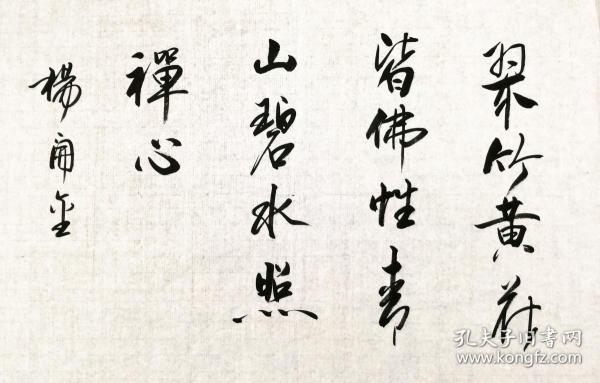 翠竹黄花
皆佛性青
山碧水照
禪心
楊開金
孔夫子旧书网
www.kongfz.com